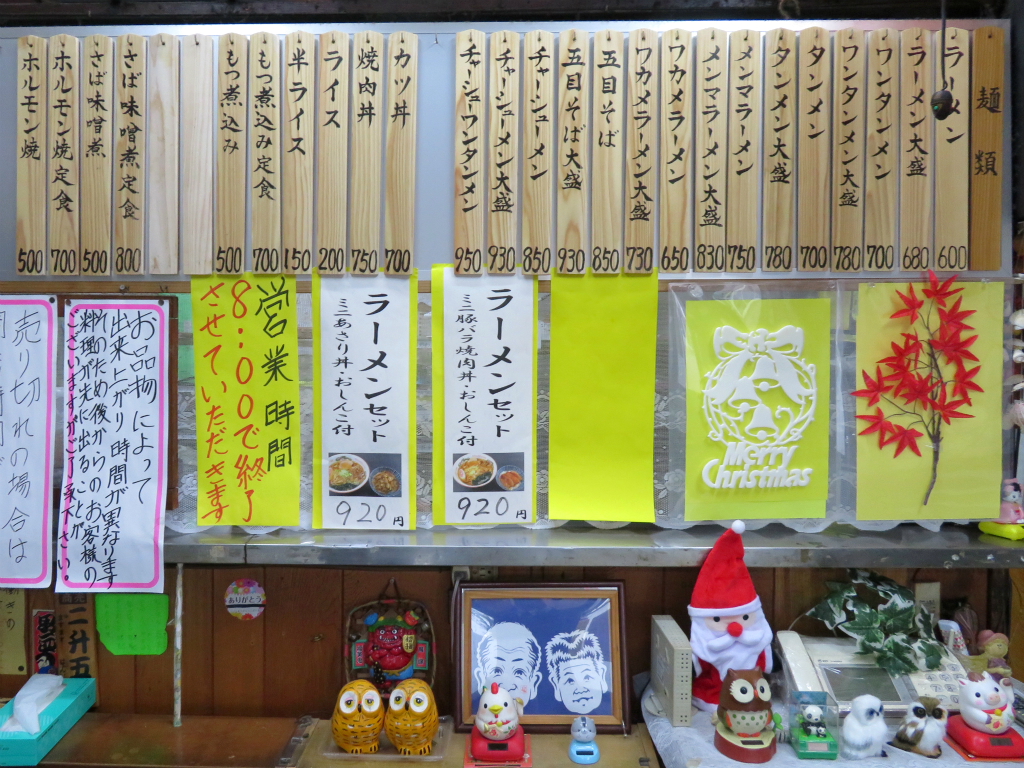 麺類
ラーメン 600
ラーメン大盛 680
ワンタンメン 700
ワンタンメン大盛 780
タンメン 700
タンメン大盛 780
メンマラーメン 750
メンマラーメン大盛 830
ワカメラーメン 650
ワカメラーメン大盛 730
五目そば 850
五目そば大盛 930
チャーシューメン 850
チャーシューメン大盛 930
チャーシュウワンタンメン 950
カツ丼 700
焼肉丼 750
ライス 200
半ライス 150
もつ煮込み定食 700
もつ煮込み 500
さば味噌煮定食 800
さば味噌煮 500
ホルモン焼定食 700
ホルモン焼 500
Merry
Christmas
ラーメンセット
ミニ豚バラ焼肉丼・おしんこ付
920円
ラーメンセット
ミニあさり丼・おしんこ付
920円
営業時間
8:00で終了
させていただきます
お品物によって
出来上がり時間が異なります
そのため後からのお客様の
料理が先に出ることが
ございますがご了承下さい。
売り切れの場合は
ありがとう
二升五